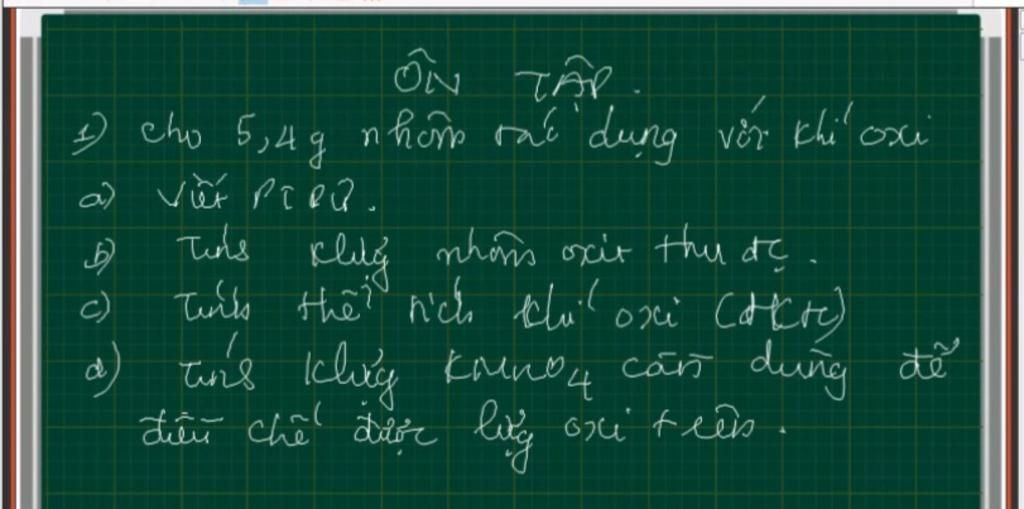 ÔN TẬP.
1) Cho 5,4g nhôm tác dụng với khí oxi
a) Viết PTPƯ.
b) Tính klượng nhôm oxit thu đc.
c) Tính thể tích khí oxi (đktc)
d) Tính klượng KMnO4 cần dùng để
điều chế được lượng oxi trên.